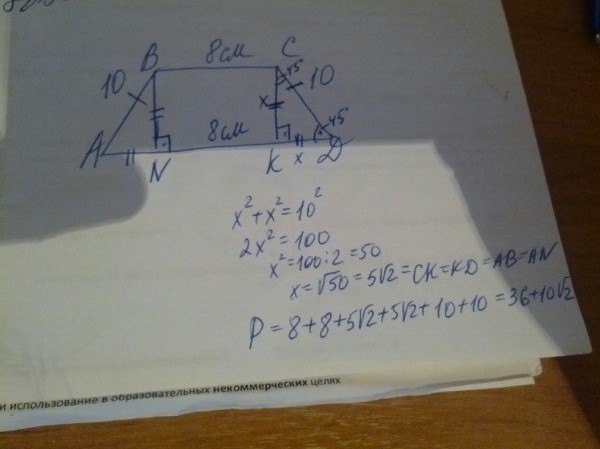 B 8см C
10 45 10
x
8см 45
A N K x D
x² + x² = 10²
2x² = 100
x² = 100 : 2 = 50
x = √50 = 5√2 = CK = KD = AB = AN
P = 8 + 8 + 5√2 + 5√2 + 10 + 10 = 36 + 10√2
и использование в образовательных некоммерческих целях